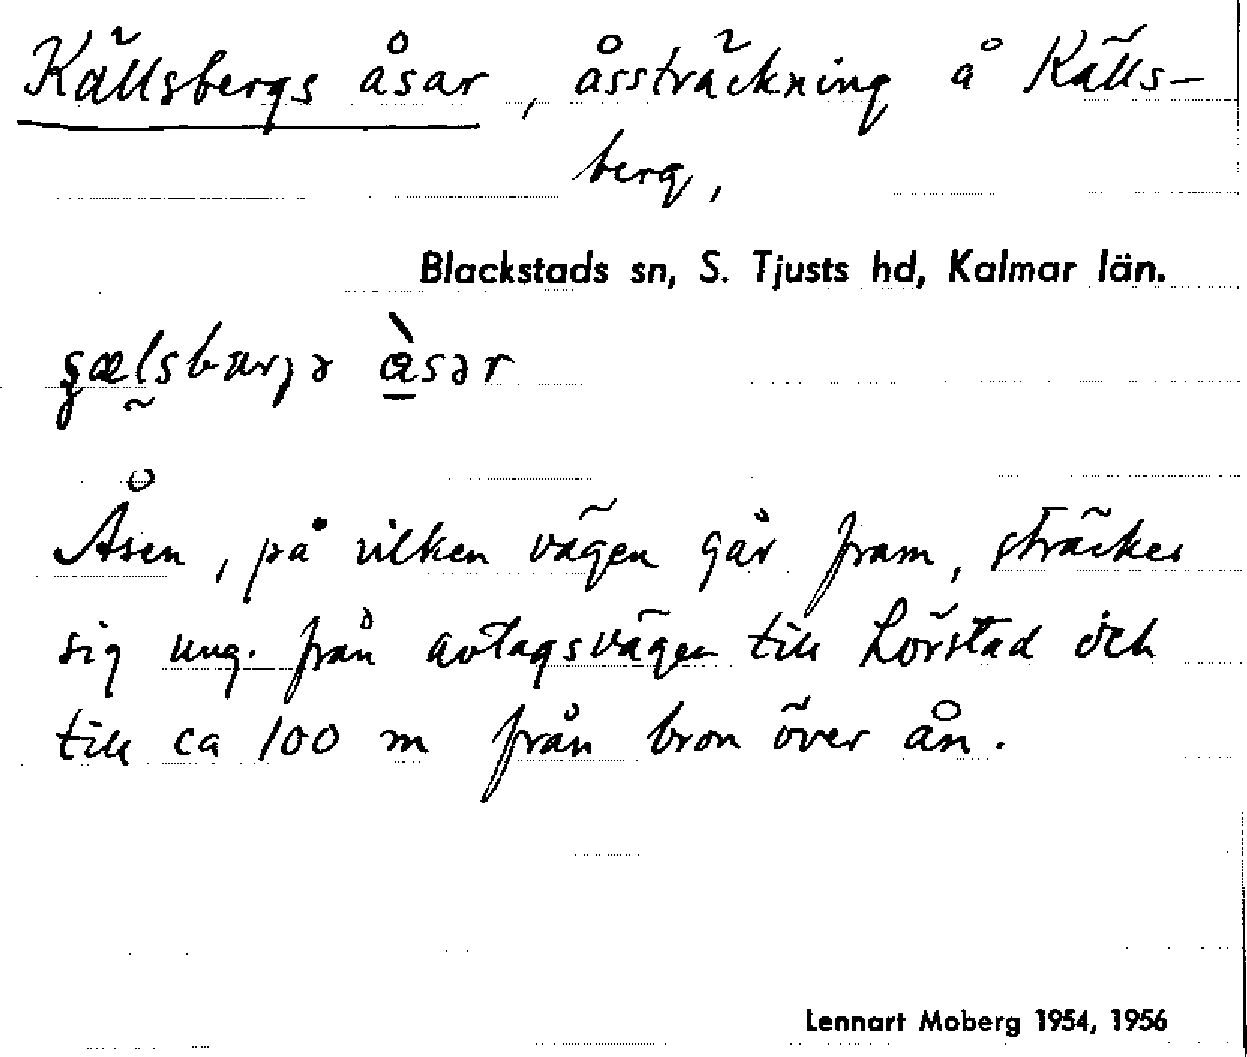 Källsbergs åsar, åssträckning å Källs-
berg,
Blackstads sn, S. Tjusts hd, Kalmar län.
åsər
Åsen, på vilken vägen går fram, sträcker
sig ung. från avtagsvägen till Lörstad och
till ca 100 m från bron över ån.
Lennart Moberg 1954, 1956